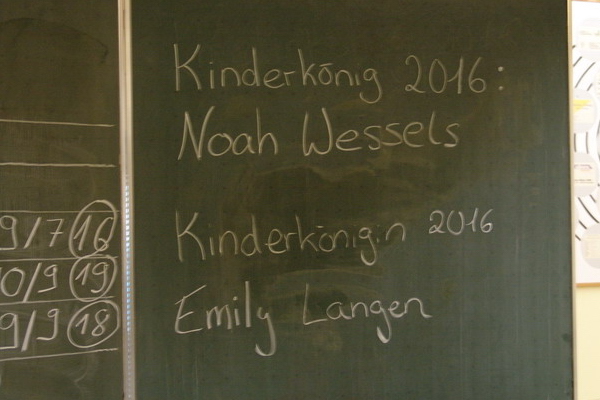 Kinderkönig 2016:
Noah Wessels
Kinderkönigin 2016
Emily Langen
9/7 16
0/9 19
9/9 18